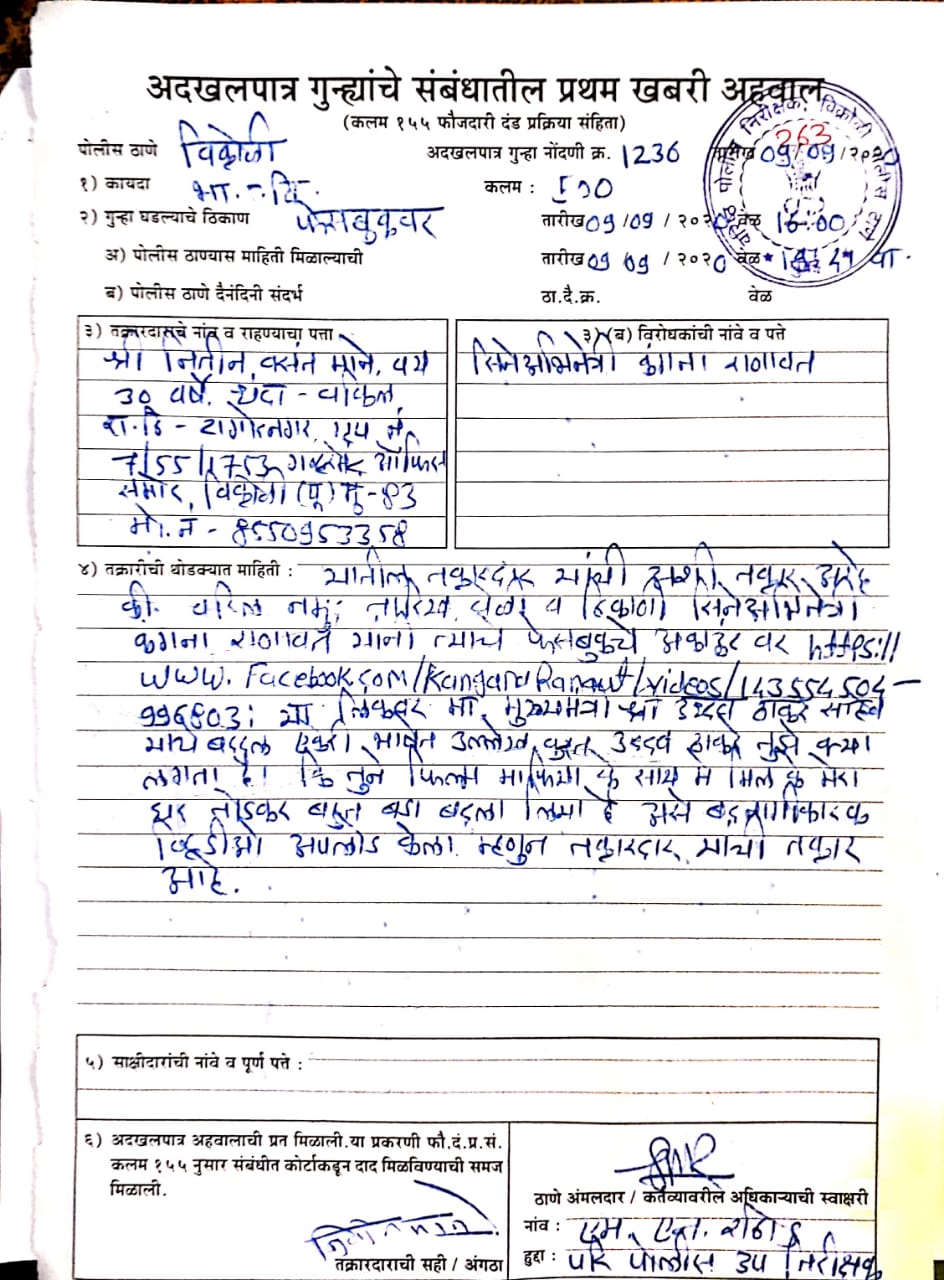 अदखलपात्र गुन्ह्यांचे संबंधातील प्रथम खबरी अहवाल
(कलम १५५ फौजदारी दंड प्रक्रिया संहिता)
पोलीस ठाणे विक्रोळी अदखलपात्र गुन्हा नोंदणी क्र. 1236 तारीख 09/09/२०२०
263
१) कायदा भा.द.वि. कलम : ५००
२) गुन्हा घडल्याचे ठिकाण फेसबुकवर तारीख 09/09/२०२० वेळ 16:00
अ) पोलीस ठाण्यास माहिती मिळाल्याची तारीख 09/09/२०२० वेळ वा.
ब) पोलीस ठाणे दैनंदिनी संदर्भ ठा.दै.क्र. वेळ
३) तक्रारदाराचे नांव व राहण्याचा पत्ता
श्री नितीन वसंत माने, वय
30 वर्षे, धंदा - वकिल,
रा.ठि - टागोरनगर,
7/55/1753, ऑफिस
समोर, विक्रोळी (पू) मु-83
मो.नं - 8550953358
३) (ब) विरोधकांची नांवे व पत्ते
सिनेअभिनेत्री कंगना राणावत
४) तक्रारीची थोडक्यात माहिती : यातील तक्रारदार यांची अशी तक्रार आहे
की. वरिल नमुद तारिख वेळी व ठिकाणी सिनेअभिनेत्री
कंगना राणावत यांनी त्यांचे फेसबुकचे अकाउंट वर https://
www.Facebook.com/KanganaRanaut/videos/143554504-
996803: या लिंकवर मा. मुख्यमंत्री श्री उध्दव ठाकरे साहेब
यांचे बद्दल एकेरी भाषेत उल्लेख करून उध्दव ठाकरे तुझे क्या
लगता है। कि तुने फिल्म माफिया के साथ मे मिल के मेरा
घर तोडकर बहुत बडा बदला लिया है असे बदनामीकारक
व्हिडीओ अपलोड केला. म्हणुन तक्रारदार यांची तक्रार
आहे.
५) साक्षीदारांची नांवे व पूर्ण पत्ते :
६) अदखलपात्र अहवालाची प्रत मिळाली.या प्रकरणी फौ.दं.प्र.सं.
कलम १५५ नुसार संबंधीत कोर्टाकडून दाद मिळविण्याची समज
मिळाली.
तक्रारदाराची सही / अंगठा
ठाणे अंमलदार / कर्तव्यावरील अधिकाऱ्याची स्वाक्षरी
नांव : एम. एन. राठोड
हुद्दा : परि पोलीस उप निरीक्षक